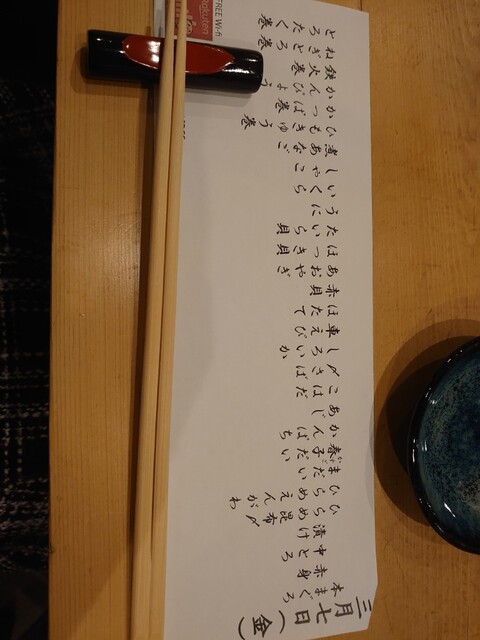 三月七日(金)
本まぐろ
赤身
中とろ
漬け
ひらめ昆布〆
ひらめえんがわ
まだい
春子だい
かんぱち
あじ
こはだ
〆さば
しろいか
車えび
ほたて
赤貝
あおやぎ
ほっき貝
たいら貝
うに
いくら
しゃこ
煮あなご
ひもきゅう巻
かんぴょう巻
かっぱ巻
鉄火巻
ねぎとろ巻
とろたく巻
FREE Wi-fi
Rakuten